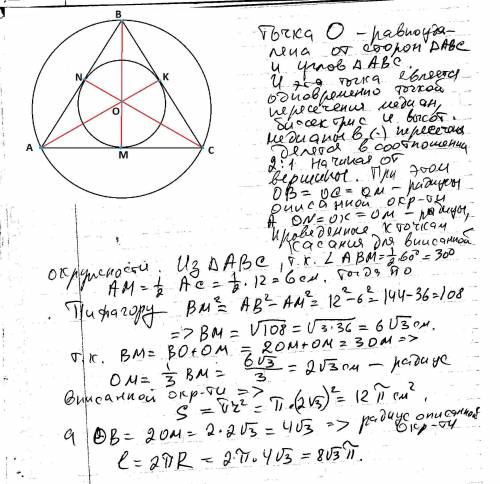 B
N
K
O
A
M
C
Точка О - равноуда-
лена от сторон ΔABC
и углов ΔABC.
И эта точка является
одновременно точкой
пересечения медиан,
биссектрис и высот.
медианы в (·) пересечения
делятся в соотношении
2:1 начиная от
вершины. При этом
OB = OC = OM - радиусы
описанной окр-ти
А ON = OK = OM - радиусы,
проведенные к точкам
касания для вписанной
окружности. Из ΔABC, т.к. ∠ABM = 1/2 60° = 30°
AM = 1/2 AC = 1/2 · 12 = 6см. Тогда по
Пифагору BM² = AB² - AM² = 12² - 6² = 144 - 36 = 108
=> BM = √108 = √3·36 = 6√3 см.
т.к. BM = BO + OM = 2OM + OM = 3OM =>
OM = 1/3 BM = 6√3/3 = 2√3 см - радиус
вписанной окр-ти =>
S = πr² = π·(2√3)² = 12π см².
а OB = 2OM = 2·2√3 = 4√3 => радиус описанной
окр-ти
l = 2πR = 2·π·4√3 = 8√3π.